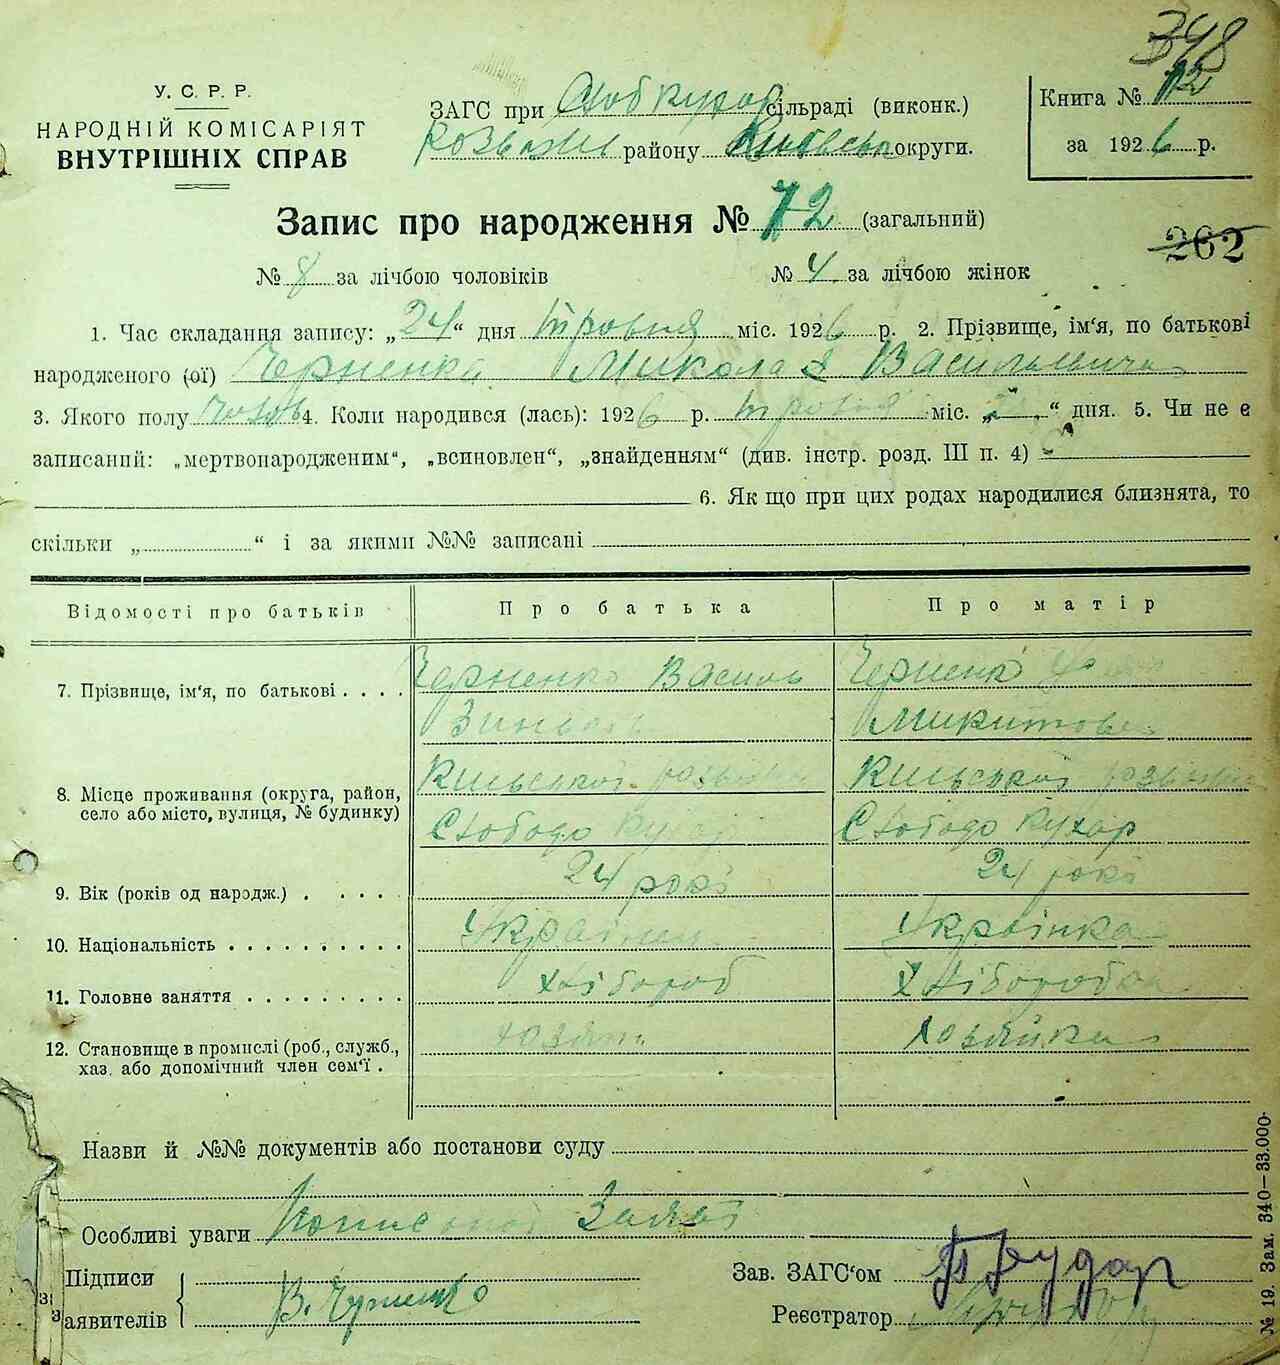 348
У. С. Р. Р.
НАРОДНІЙ КОМІСАРІЯТ
ВНУТРІШНІХ СПРАВ
ЗАГС при Слоб кухар сільраді (виконк.)
Розважів району Київська округи.
Книга № 12
за 1926 р.
Запис про народження № 72 (загальний)
262
№ 8 за лічбою чоловіків № 4 за лічбою жінок
1. Час складання запису: „24“ дня травня міс. 1926 р. 2. Прізвище, ім'я, по батькові
народженого (ої) Черненка Микола Васильевича
3. Якого полу чолов 4. Коли народився (лась): 1926 р. травня міс. „ “ дня. 5. Чи не є
записаний: „мертвонародженим“, „всиновлен“, „знайденням“ (див. інстр. розд. III п. 4)
6. Як що при цих родах народилися близнята, то
скільки „ “ і за якими №№ записані
Відомості про батьків Про батька Про матір
7. Прізвище, ім'я, по батькові . . . . Черненко Василь Черненко
Микитовн
8. Місце проживання (округа, район, село або місто, вулиця, № будинку) Кильської Розважів Кильської Розважів
Слободо Кухар Слободо Кухар
9. Вік (років од народж.) . . . . . 24 рокі 24 рокі
10. Національність . . . . . . . . . . Українец Українка
11. Головне заняття . . . . . . . . . Хлібороб Хліборобка
12. Становище в промислі (роб., служб., хаз. або допомічний член сем'ї . хозяїн хозяйка
Назви й №№ документів або постанови суду
Особливі уваги
Підписи
Заявителів В. Черненко
Зав. ЗАГС'ом
Реєстратор
№ 19. Зам. 340—33.000.